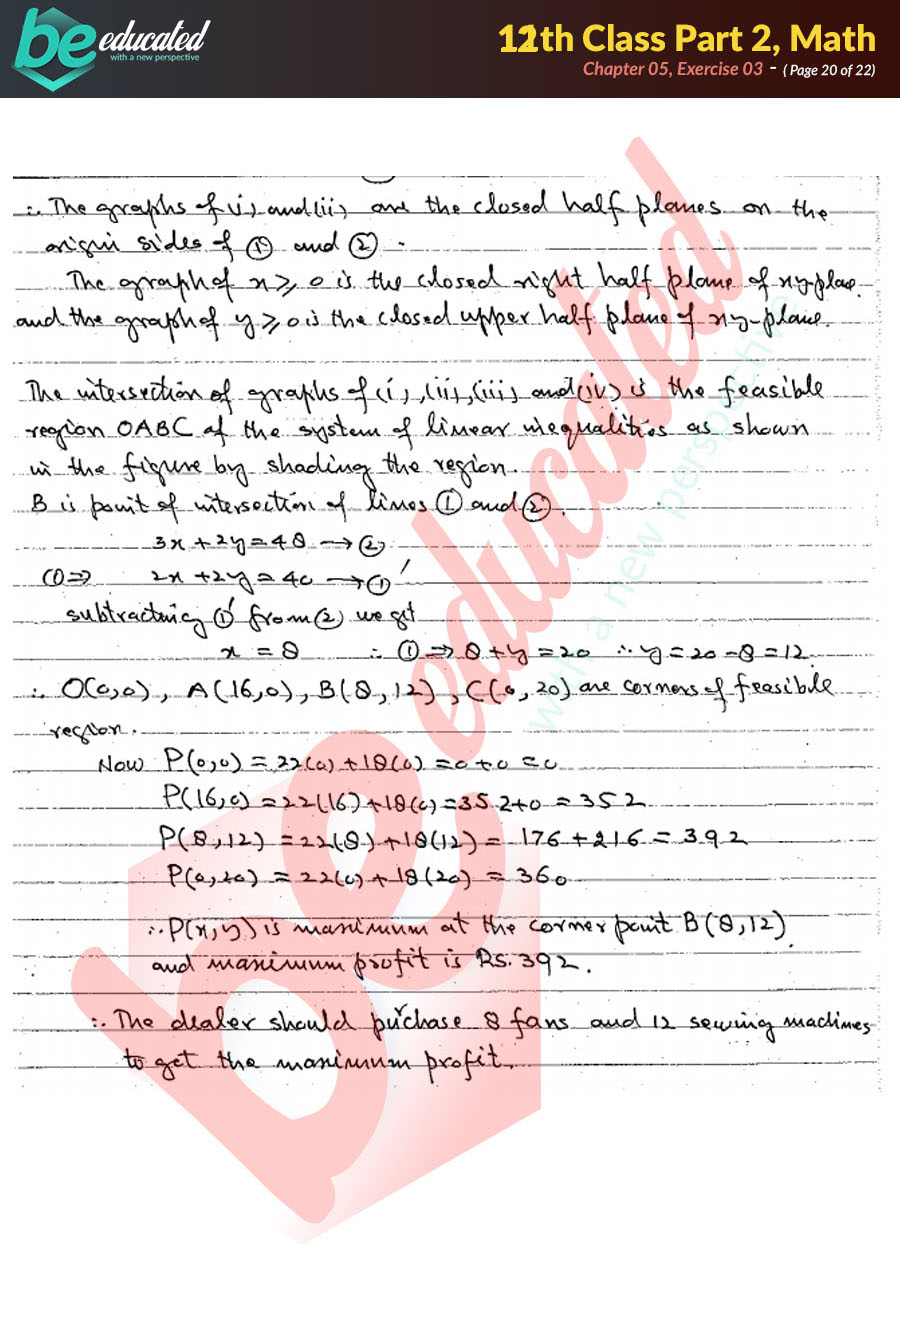 be educated
with a new perspective
12th Class Part 2, Math
Chapter 05, Exercise 03 - ( Page 20 of 22)
∴ The graphs of (i) and (ii) are the closed half planes on the
origin sides of ① and ② .
The graph of x ⩾ 0 is the closed right half plane of xy-plane.
and the graph of y ⩾ 0 is the closed upper half plane of xy-plane.
The intersection of graphs of (i), (ii), (iii) and (iv) is the feasible
region OABC of the system of linear inequalities as shown
in the figure by shading the region.
B is point of intersection of lines ① and ②.
3x + 2y = 48 → ②
① ⇒ 2x + 2y = 40 → ①′
subtracting ①′ from ② we get
x = 8 ∴ ① ⇒ 8 + y = 20 ∴ y = 20 - 8 = 12
∴ O(0,0), A(16,0), B(8,12), C(0,20) are corners of feasible
region.
Now P(0,0) = 22(0) + 18(0) = 0 + 0 = 0
P(16,0) = 22(16) + 18(0) = 352 + 0 = 352
P(8,12) = 22(8) + 18(12) = 176 + 216 = 392
P(0,20) = 22(0) + 18(20) = 360
∴ P(x,y) is maximum at the corner point B(8,12)
and maximum profit is Rs. 392.
∴ The dealer should purchase 8 fans and 12 sewing machines
to get the maximum profit.
be educated
with a new perspective